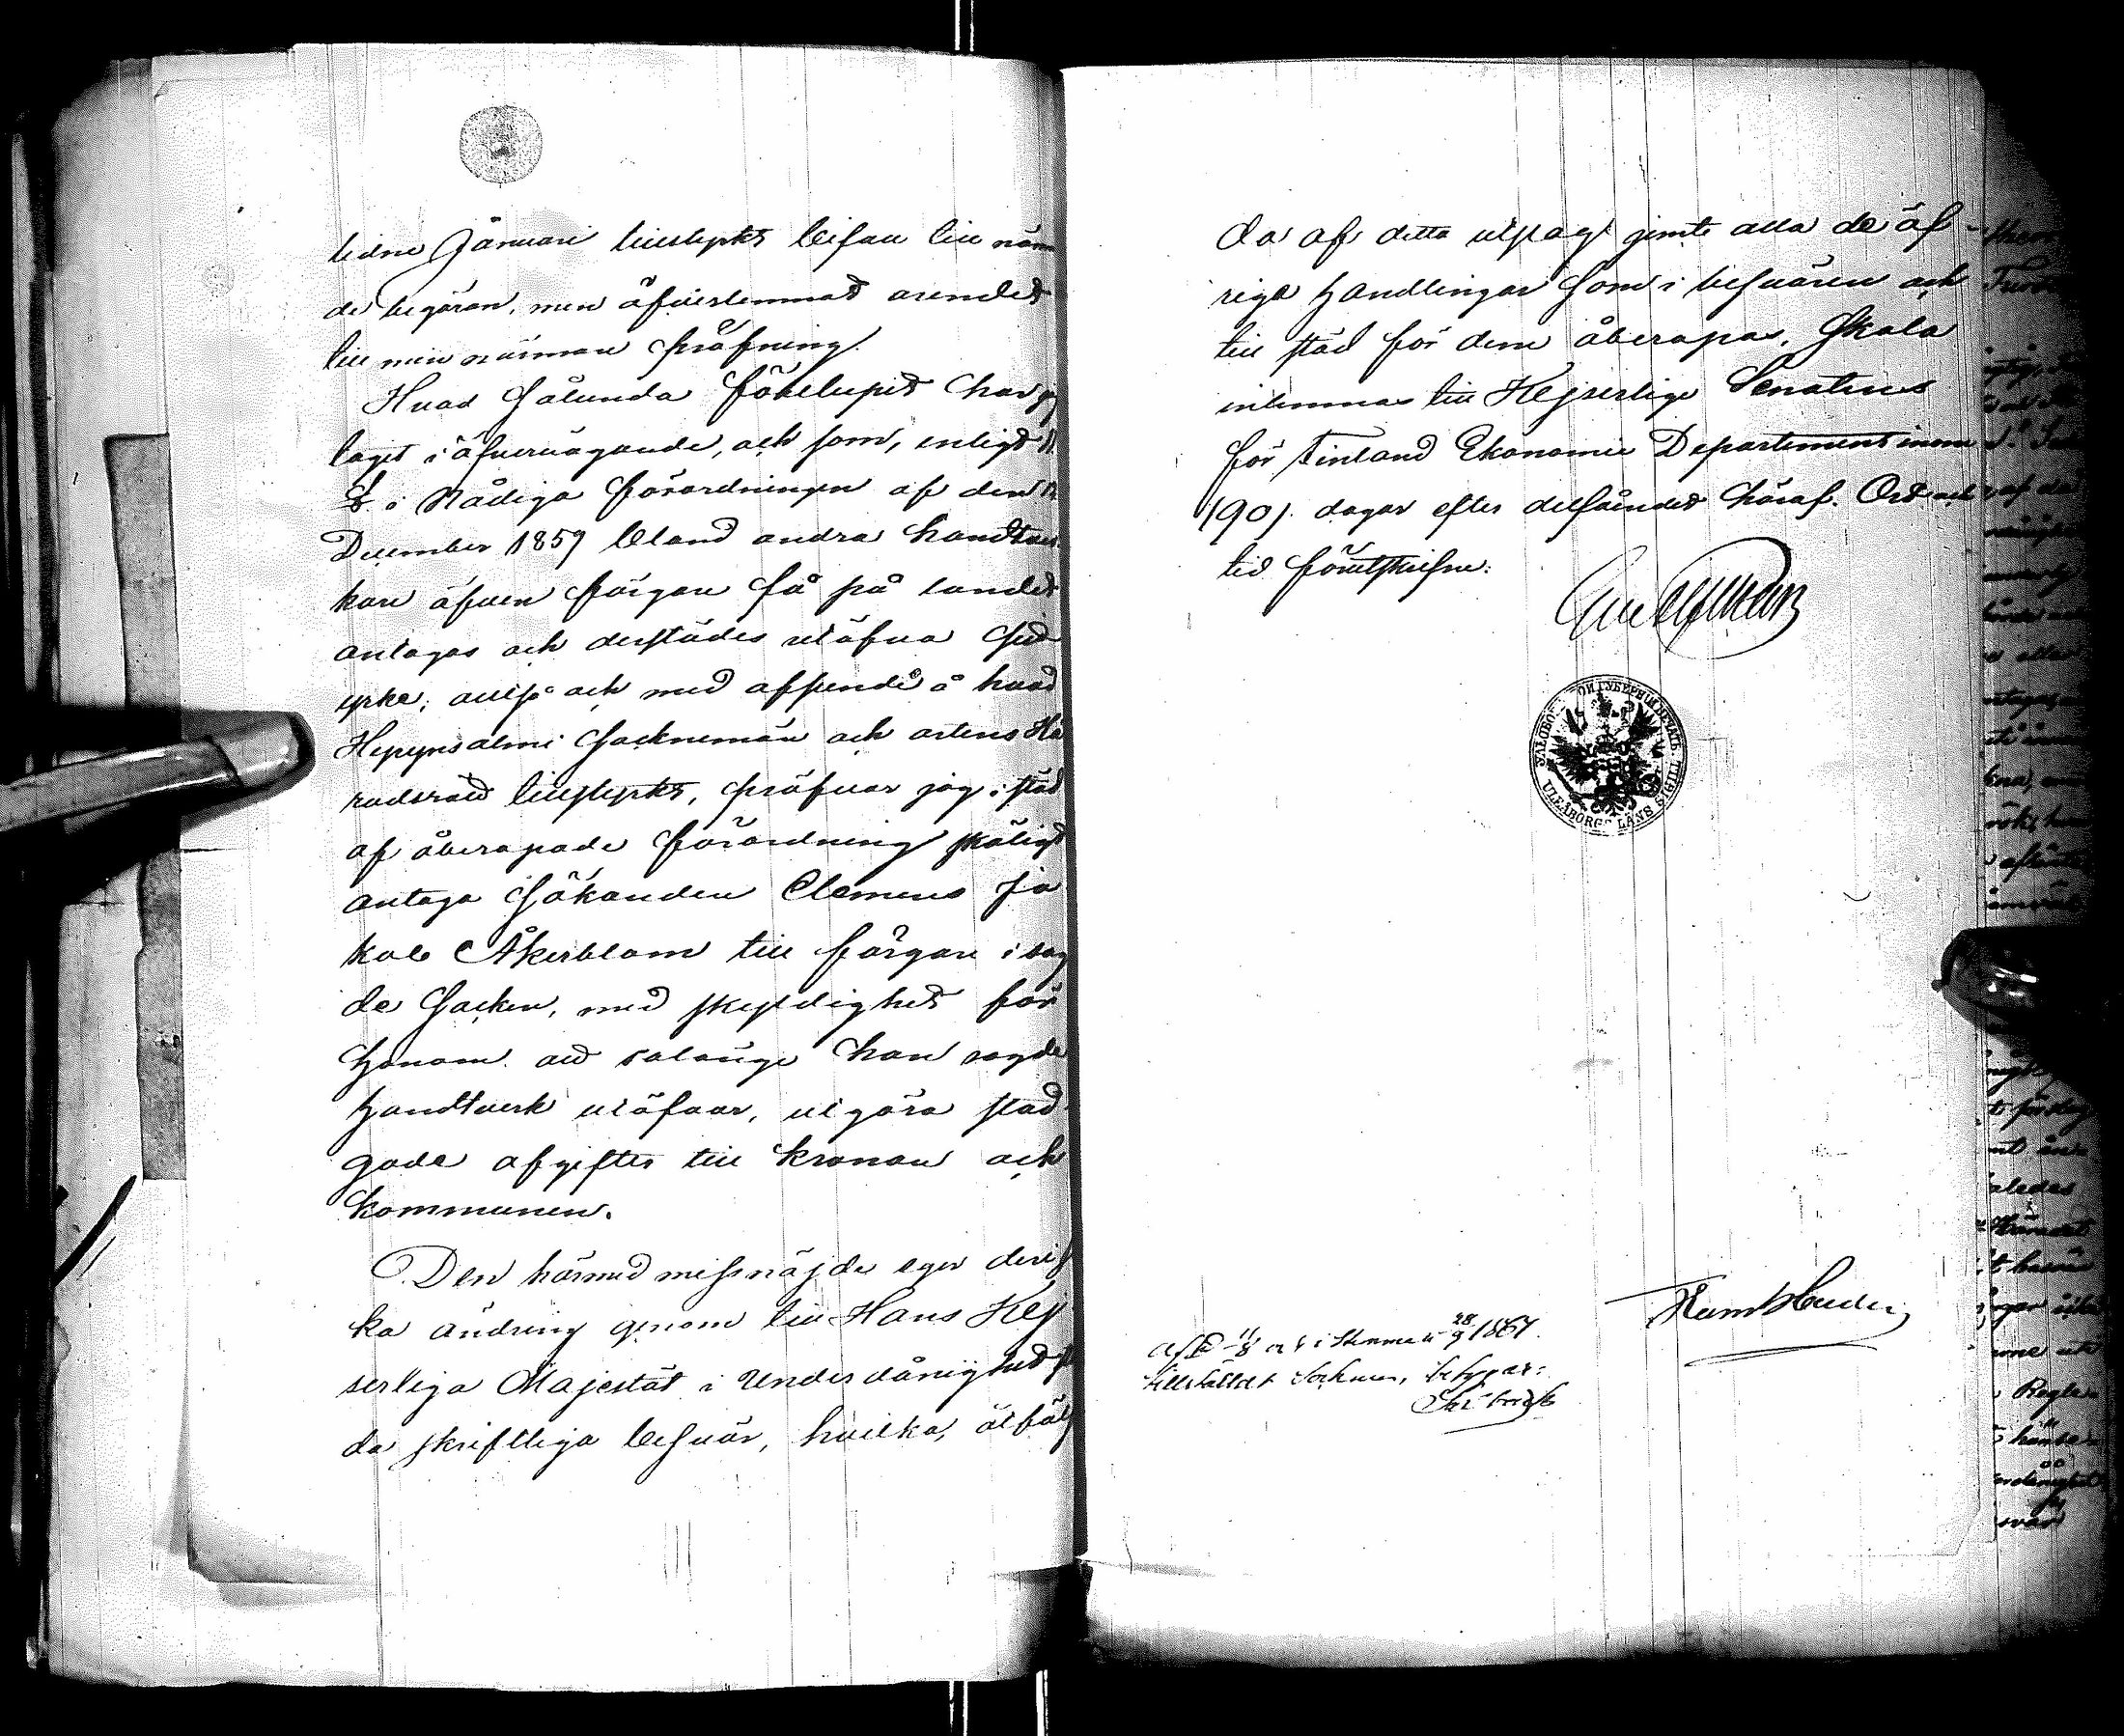 lidne Januari tillstyrkt bifall till näm
de begäran, men öfverlemnat ärendet
till min närmare pröfning.
Hvad sålunda förelupit har jag
tagit i öfvervägande, och som, enligt
§. i Nådiga förordningen af den 12
December 1859 bland andra handtver
kare äfven färgare få på landet
antagas och derstädes utöfva sitt
yrke; alltså och med afseende å hvad
Hyrynsalmi sockenmän och ortens Hä
radsrätt tillstyrkt, pröfvar jag i stöd
af åberopade förordning skäligt
antaga sökanden Clemens Ja
kob Åkerblom till färgare i sag
de socken, med skyldighet för
honom att sålänge han sagde
handtverk utöfvar, utgöra stad
gade afgifter till kronan och
kommunen.
Den härmed missnöjde eger deri sö
ka ändring genom till Hans Kej
serliga Majestät i Underdånighet
da skriftliga besvär, hvilka, åtföl
da af detta utslag jemte alla de öf-
riga handlingar som i besvären och
till stöd för dem åberopas, skola
inlemnas till Kejserliga Senatens
för Finland Ekonomie Departement inom
190). dagar efter delfåendet häraf. Ort och
tid förutskrifne:
УЛЕОБОРГСКОЙ ГУБЕРНІИ ПЕЧАТЬ
ULEÅBORGS LÄNS SIGILL
11/8 28/9 1867.
tillstäldt Sökanden, betygar: